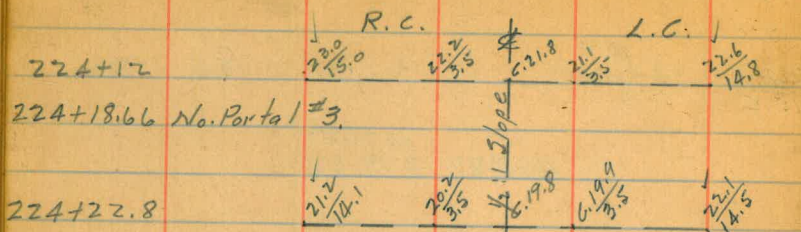 R.C. ⅊ L.C.
224+12 23.0/15.0 22.2/3.5 C.21.8 21.1/3.5 22.6/14.8
224+18.66 No. Portal #3.
½:1 Slope
224+22.8 21.2/14.1 20.2/3.5 C.19.8 C.19.9/3.5 22.1/14.5